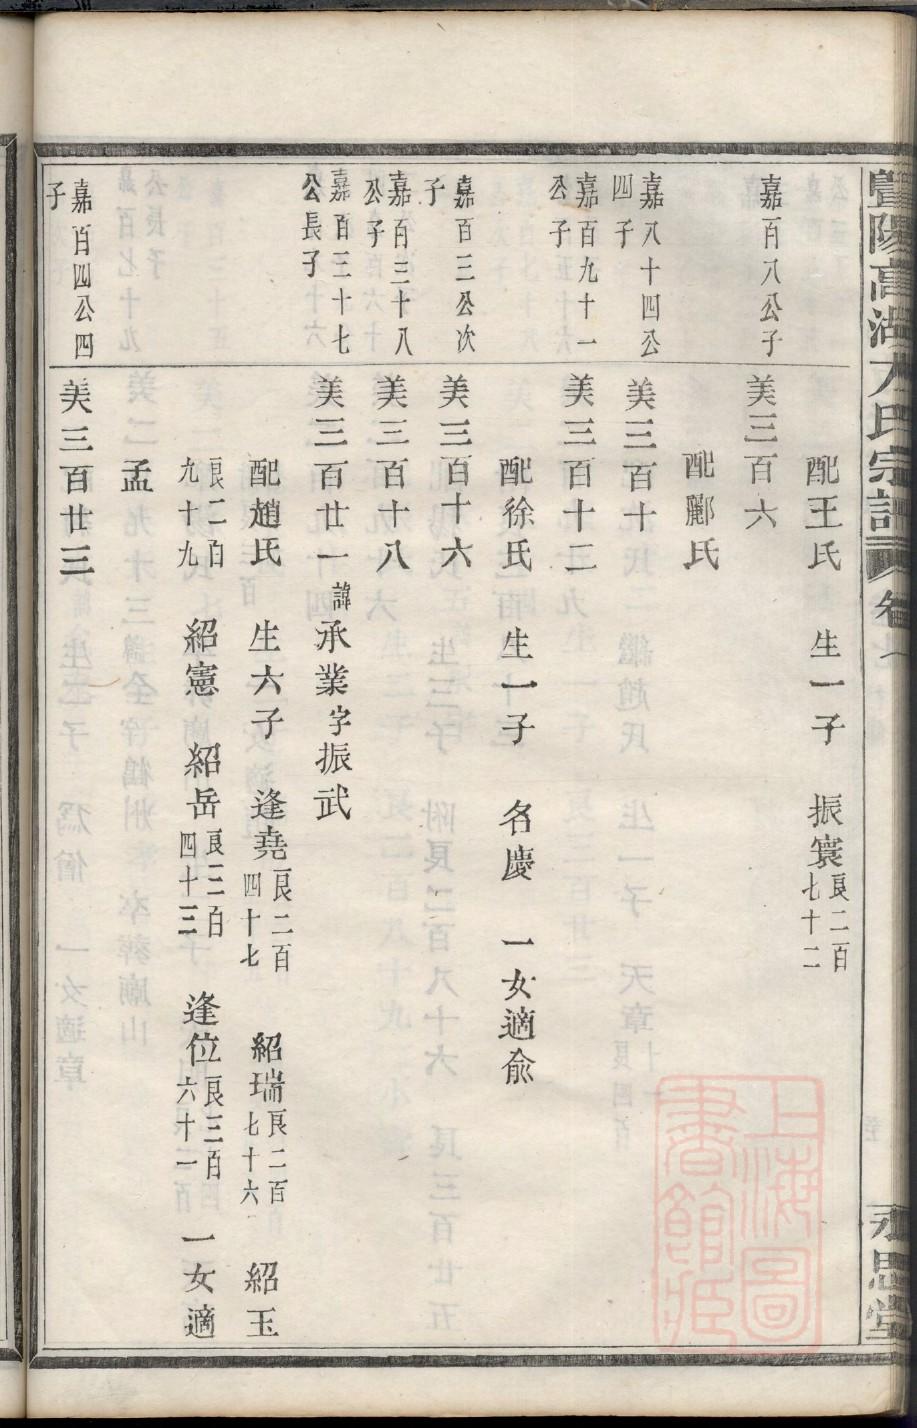 暨陽高湖 氏宗譜 卷
永思堂
配王氏 生一子 振寰 良二百七十二
嘉百八公子 美三百六
配酈氏
嘉八十四公四子 美三百十
嘉百九十一公子 美三百十二
配徐氏 生一子 名慶 一女適俞
嘉百三公次子 美三百十六
嘉百三十八公子 美三百十八
嘉百三十七公長子 美三百廿一 諱承業字振武
配趙氏 生六子 逢堯 良二百四十七 紹瑞 良二百七十六 紹玉
良二百九十九 紹憲 紹岳 良三百四十三 逢位 良三百六十一 一女適
孟
嘉百四公四子 美三百廿三
上海圖書館藏